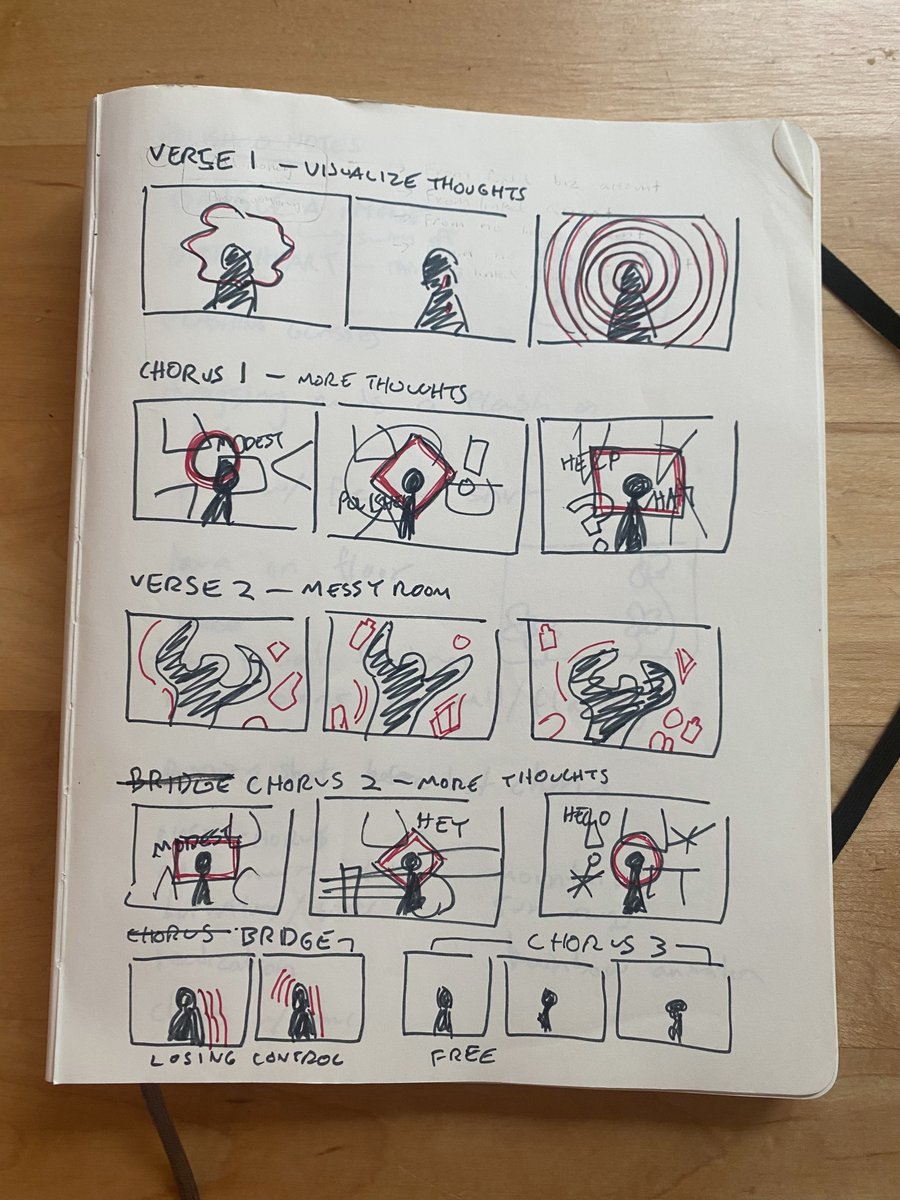 VERSE 1 - VISUALIZE THOUGHTS
CHORUS 1 - MORE THOUGHTS
MODEST
HELP
VERSE 2 - MESSY ROOM
BRIDGE CHORUS 2 - MORE THOUGHTS
MODEST
HEY
HELLO
CHORUS BRIDGE
CHORUS 3
LOSING CONTROL
FREE